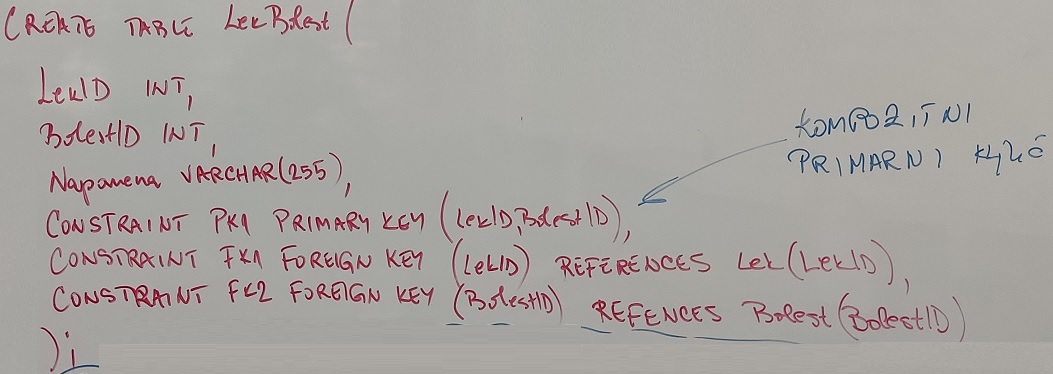 CREATE TABLE LekBolest (
LekID INT,
BolestID INT,
Napomena VARCHAR(255),
KOMPOZITNI
PRIMARNI KLJUČ
CONSTRAINT PK1 PRIMARY KEY (LekID,BolestID),
CONSTRAINT FK1 FOREIGN KEY (LekID) REFERENCES Lek(LekID),
CONSTRAINT FK2 FOREIGN KEY (BolestID) REFENCES Bolest(BolestID)
);